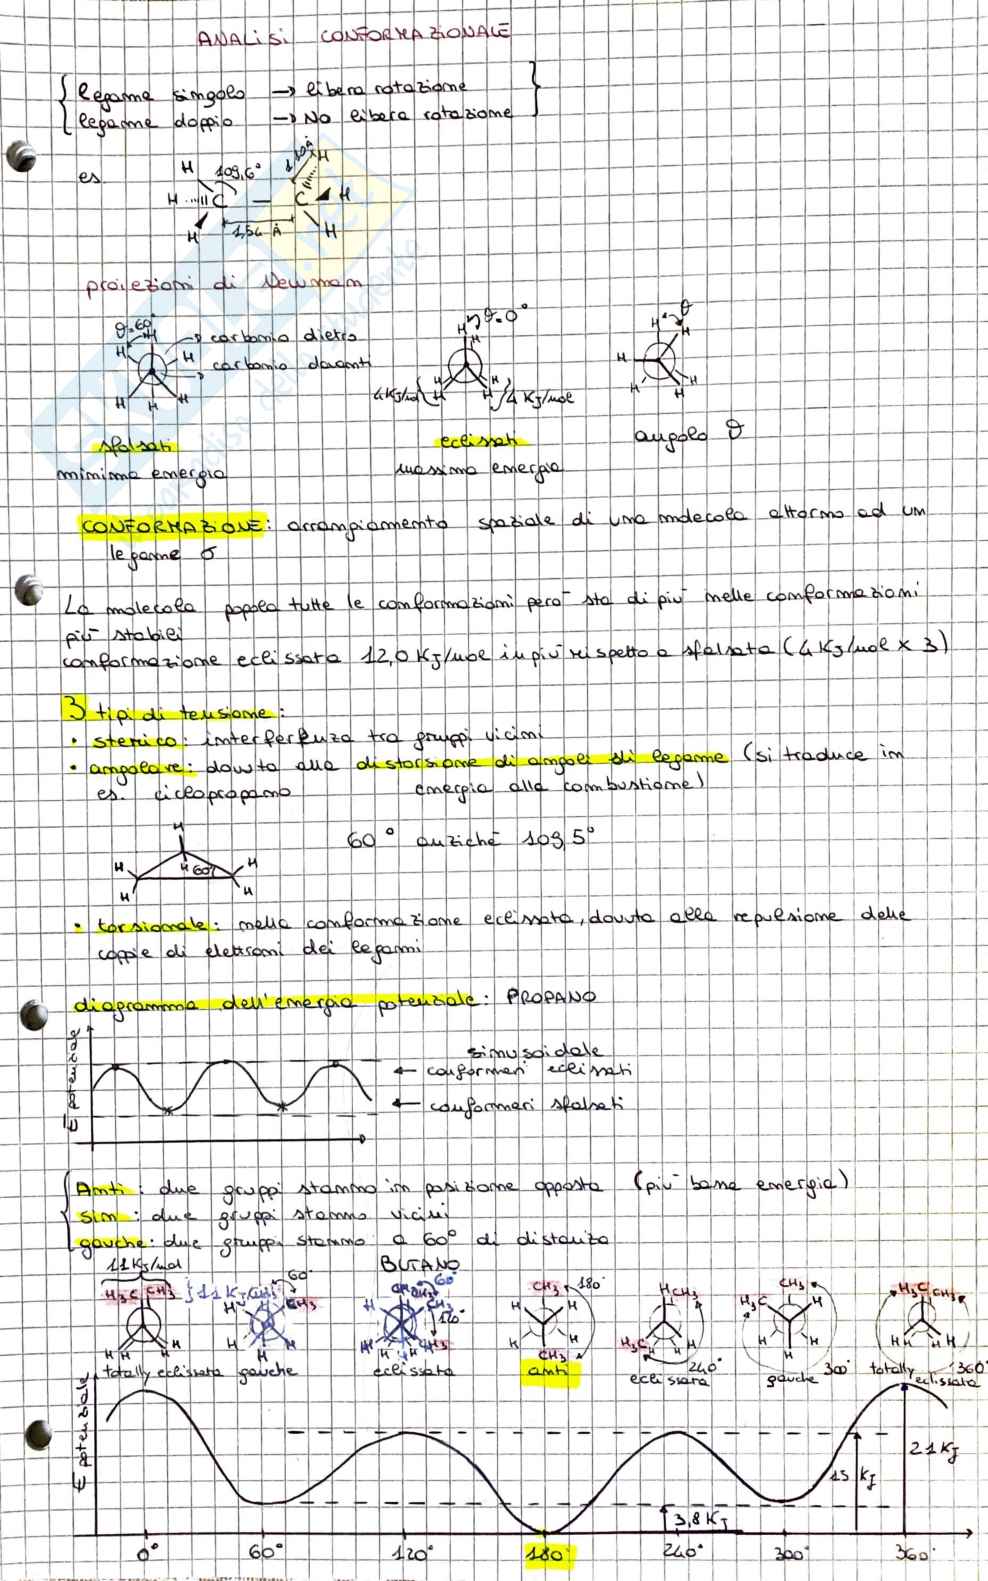 ANALISI CONFORMAZIONALE
legame singolo → libera rotazione
legame doppio → No libera rotazione
es.
H 109,6° H
H C — C H
H 1,54 Å H
proiezioni di Newman
θ=60°
H
H
→ carbonio dietro
H
→ carbonio davanti
H H H
θ=0°
H H
H H H H
4 KJ/mol
4 KJ/mol
θ
H H
H
H H H
sfalsati
minima energia
eclissati
massima energia
angolo θ
CONFORMAZIONE: arrangiamento spaziale di una molecola attorno ad un
legame σ
La molecola popola tutte le conformazioni però sta di più nelle conformazioni
più stabili
conformazione eclissata 12,0 KJ/mol in più rispetto a sfalsata (4 KJ/mol x 3)
3 tipi di tensione:
• sterico: interferenza tra gruppi vicini
• angolare: dovuta alla distorsione di angoli di legame (si traduce in
es. ciclopropano energia alla combustione)
60° anziché 109,5°
H
H H 60° H
H H
• torsionale: nella conformazione eclissata, dovuta alla repulsione delle
coppie di elettroni dei legami
diagramma dell'energia potenziale: PROPANO
E potenziale
sinusoidale
← conformeri eclissati
← conformeri sfalsati
Anti: due gruppi stanno in posizione opposta (più bassa energia)
sin: due gruppi stanno vicini
gauche: due gruppi stanno a 60° di distanza
BUTANO
11 KJ/mol
H₃C CH₃
H H H H
totally eclissata
60°
H CH₃
H H
H
gauche
60°
CH₃
H CH₃
120°
H H H CH₃
eclissata
CH₃ 180°
H H
H H
CH₃
anti
H CH₃
H₃C H H
240°
eclissata
CH₃
H₃C H
H H
H
300°
gauche
H₃C CH₃
H H H
360°
totally eclissata
E potenziale
21 KJ
15 KJ
3,8 KJ
0° 60° 120° 180° 240° 300° 360°